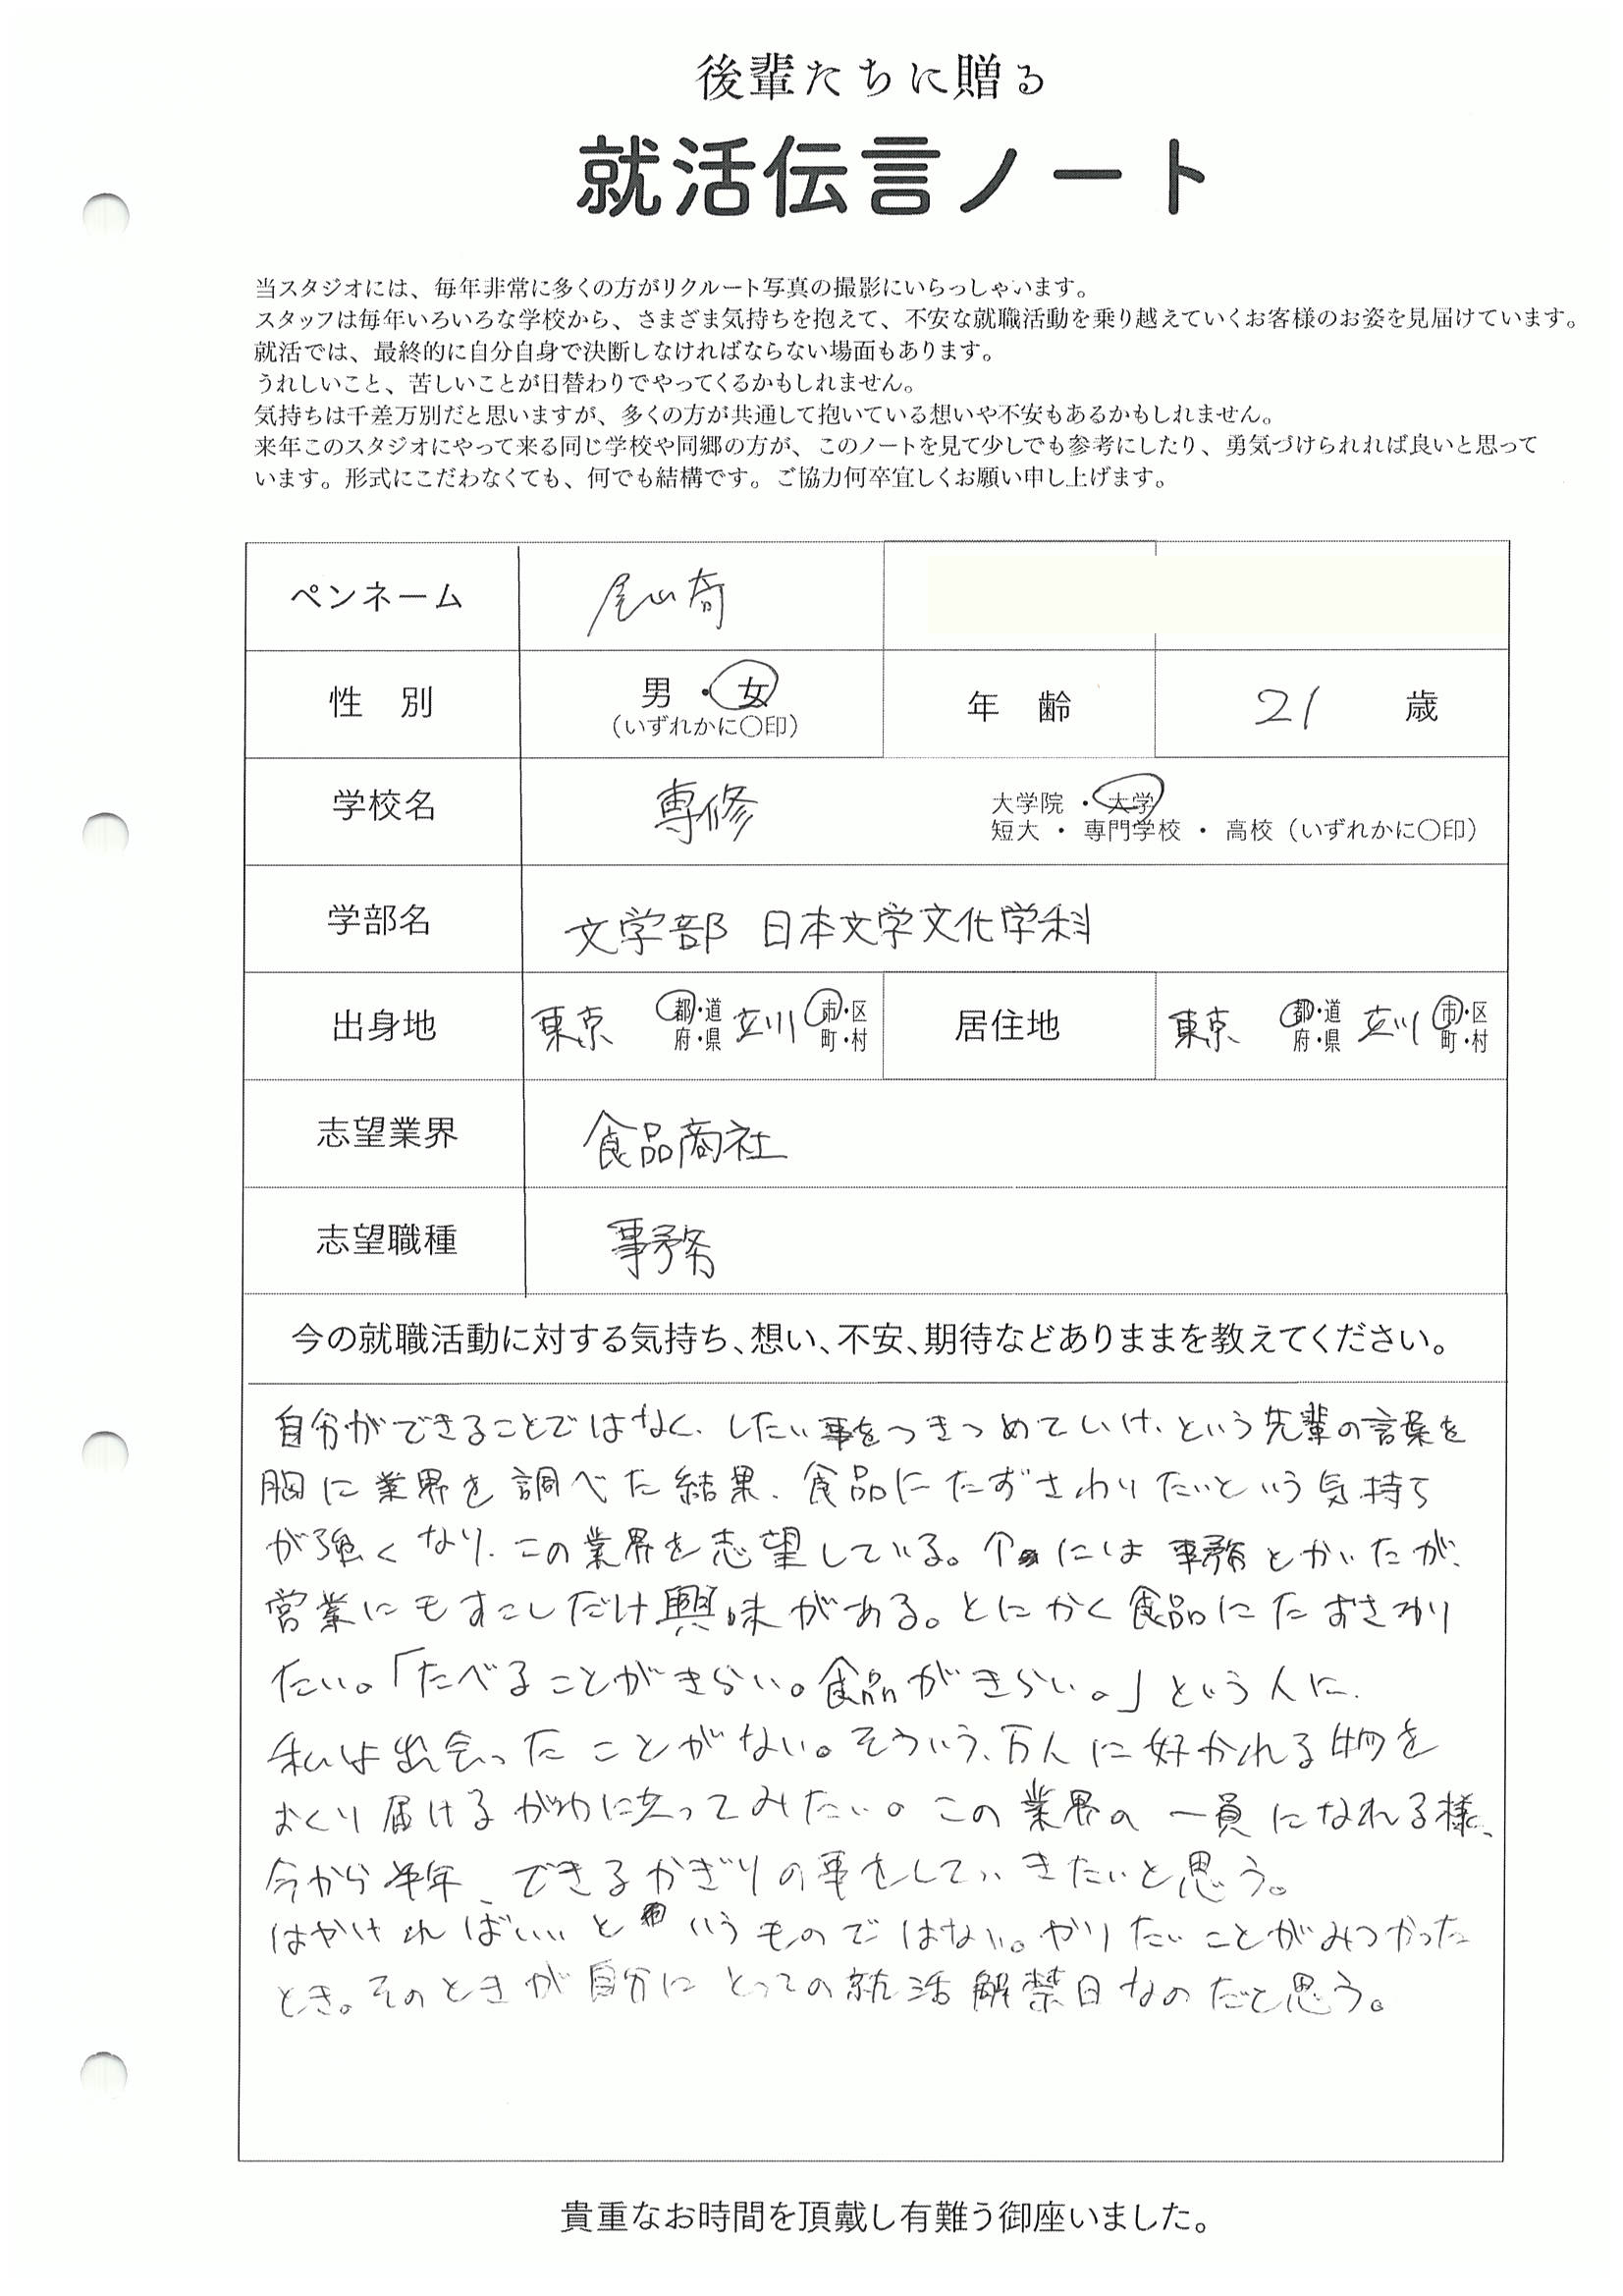 後輩たちに贈る
就活伝言ノート
当スタジオには、毎年非常に多くの方がリクルート写真の撮影にいらっしゃいます。
スタッフは毎年いろいろな学校から、さまざま気持ちを抱えて、不安な就職活動を乗り越えていくお客様のお姿を見届けています。
就活では、最終的に自分自身で決断しなければならない場面もあります。
うれしいこと、苦しいことが日替わりでやってくるかもしれません。
気持ちは千差万別だと思いますが、多くの方が共通して抱いている想いや不安もあるかもしれません。
来年このスタジオにやって来る同じ学校や同郷の方が、このノートを見て少しでも参考にしたり、勇気づけられれば良いと思って
います。形式にこだわなくても、何でも結構です。ご協力何卒宜しくお願い申し上げます。
ペンネーム
性 別 男・女 年 齢 21 歳
(いずれかに〇印)
学校名 専修 大学院・大学
短大・専門学校・高校(いずれかに〇印)
学部名 文学部 日本文学文化学科
出身地 東京 都・道 立川 市・区 居住地 東京 都・道 立川 市・区
府・県 町・村 府・県 町・村
志望業界 食品商社
志望職種 事務
今の就職活動に対する気持ち、想い、不安、期待などありままを教えてください。
自分ができることではなく、したい事をつきつめていけ、という先輩の言葉を
胸に業界を調べた結果、食品にたずさわりたいという気持ち
が強くなり、この業界を志望している。 には事務とかいたが、
営業にもすこしだけ興味がある。とにかく食品にたずさわり
たい。「たべることがきらい。食品がきらい。」という人に、
私は出会ったことがない。そういう、万人に好かれる物を
おくり届けるがわに立ってみたい。この業界の一員になれる様、
今から半年、できるかぎりの事をしていきたいと思う。
はやければいいというものではない。やりたいことがみつかった
とき。そのときが自分にとっての就活解禁日なのだと思う。
貴重なお時間を頂戴し有難う御座いました。